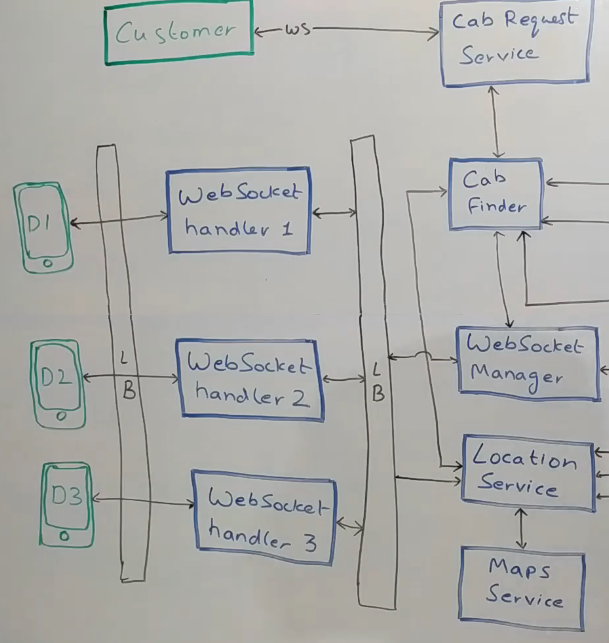 Customer
WS
Cab Request
Service
Cab
Finder
D1
WebSocket
handler 1
D2
WebSocket
handler 2
L
B
L
B
WebSocket
Manager
D3
WebSocket
handler 3
Location
Service
Maps
Service